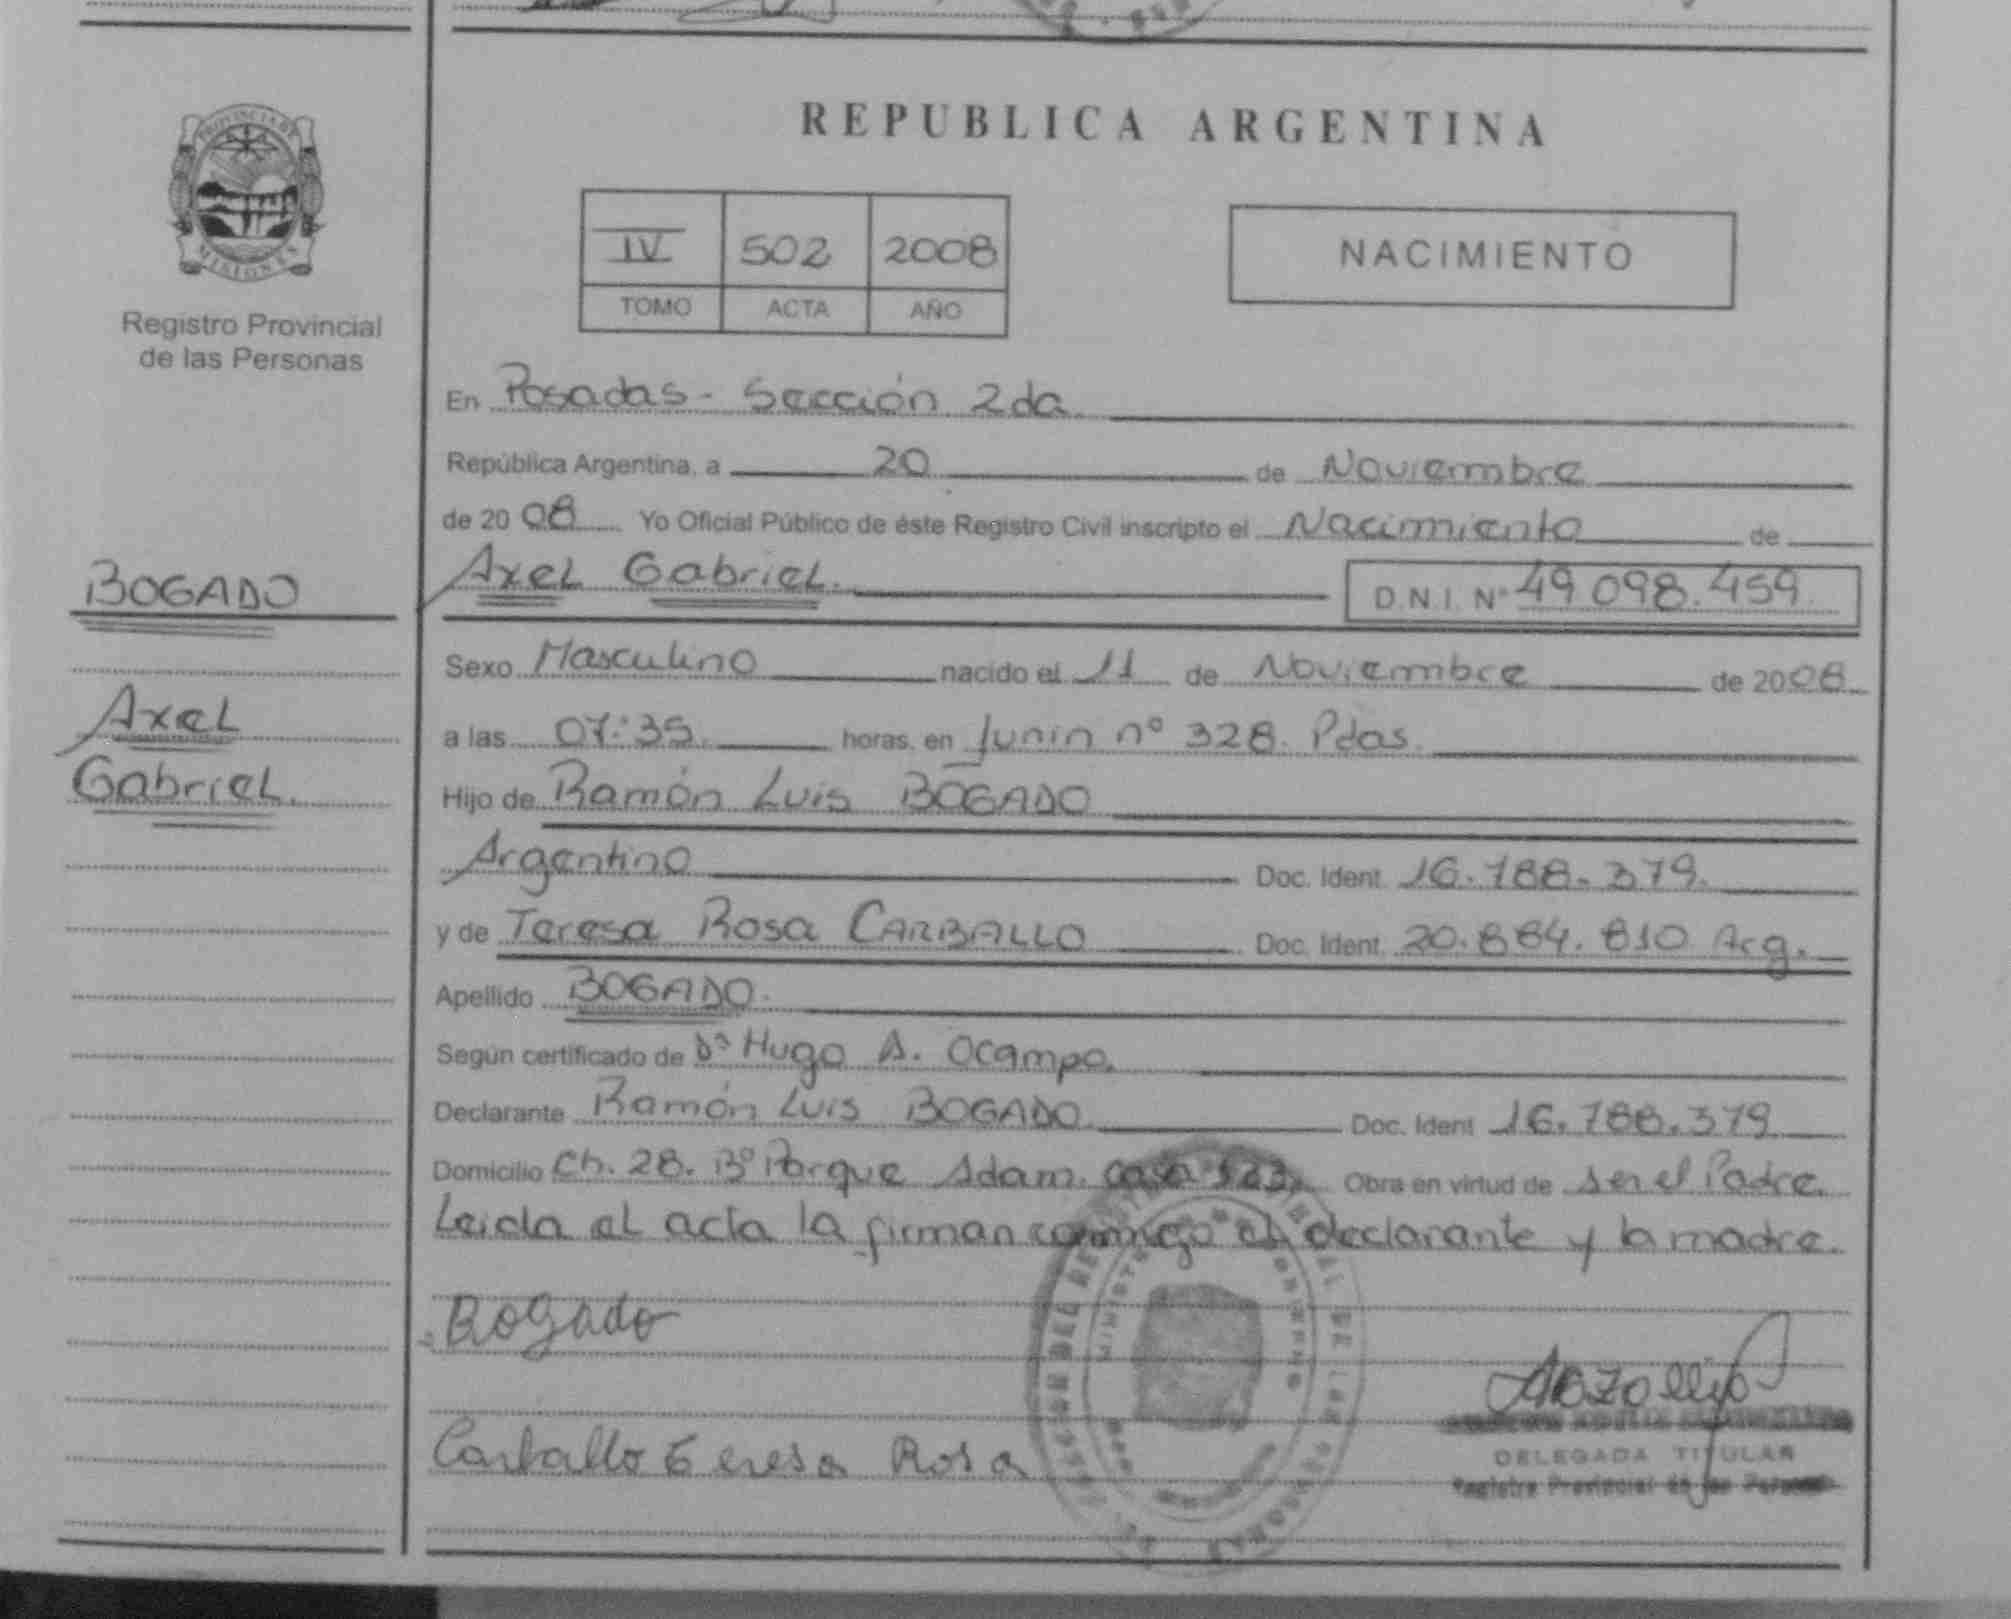 PROVINCIA DE
MISIONES
Registro Provincial
de las Personas
BOGADO
Axel
Gabriel.
REPUBLICA ARGENTINA
IV 502 2008
TOMO ACTA AÑO
NACIMIENTO
En Posadas - Sección 2da
República Argentina, a 20 de Noviembre
de 2008 Yo Oficial Público de éste Registro Civil inscripto el Nacimiento de
Axel Gabriel. D.N.I. Nº 49 098.459
Sexo Masculino nacido el 11 de Noviembre de 2008
a las 07:35 horas, en Junin nº 328. Pdas.
Hijo de Ramón Luis BOGADO
Argentino Doc. Ident. 16.788.379.
y de Teresa Rosa CARBALLO Doc. Ident. 20.884.810 Arg.
Apellido BOGADO.
Según certificado de Dr Hugo A. Ocampo.
Declarante Ramón Luis BOGADO Doc. Ident 16.788.379
Domicilio Ch. 28. Bº Parque Adam. casa Obra en virtud de ser el Padre.
Leida el acta la firman conmigo el declarante y la madre.
Bogado
Carballo Teresa Rosa
DELEGADA TITULAR
Registro Provincial de las Personas